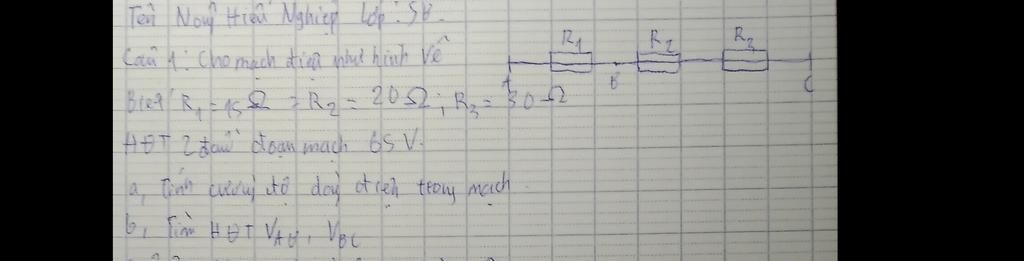 Tên Nông Hiếu Nghiệp Lớp: 
Câu 1: Cho mạch điện như hình vẽ
R1 R2 R3
B C
Biết R1 = 15Ω ; R2 = 20Ω ; R3 = 30Ω
HĐT 2 đầu đoạn mạch 65V.
a, Tính cường độ dòng điện trong mạch.
b, Tìm HĐT VAB, VBC